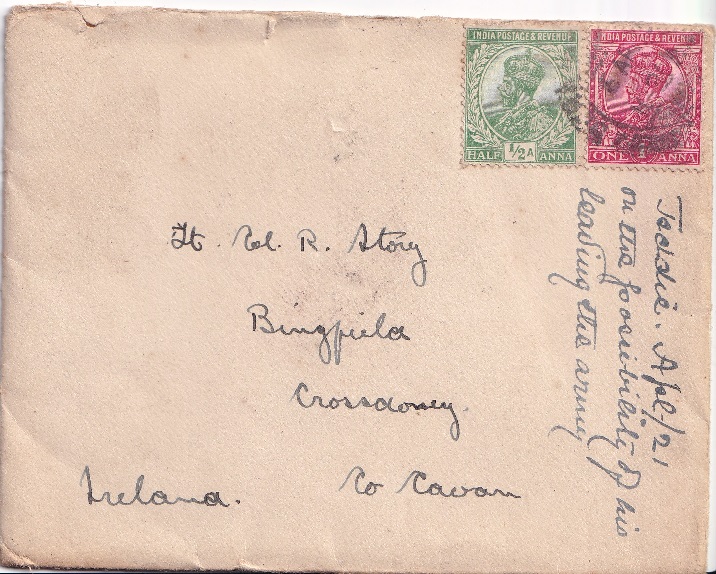 INDIA POSTAGE & REVENUE
HALF 1/2 A ANNA
INDIA POSTAGE & REVENUE
ONE 1 ANNA
Lt. Col. R. Story
Bingfield
Crossdoney.
Co Cavan
Ireland.
Teddie. Apl-/21
on the possibility of his
leading the army